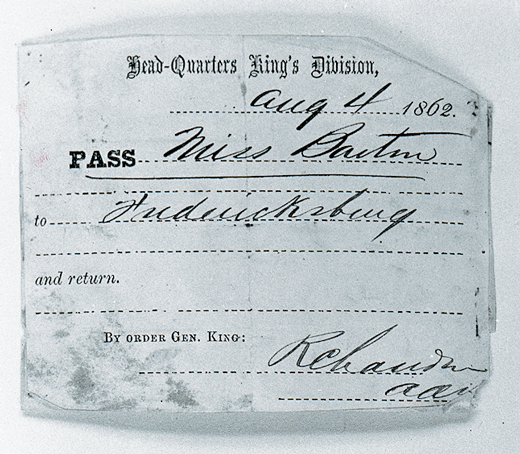 Head-Quarters King's Division,
Aug 4 1862.
PASS Miss Barton
to Fredericksburg
and return.
BY ORDER GEN. KING: